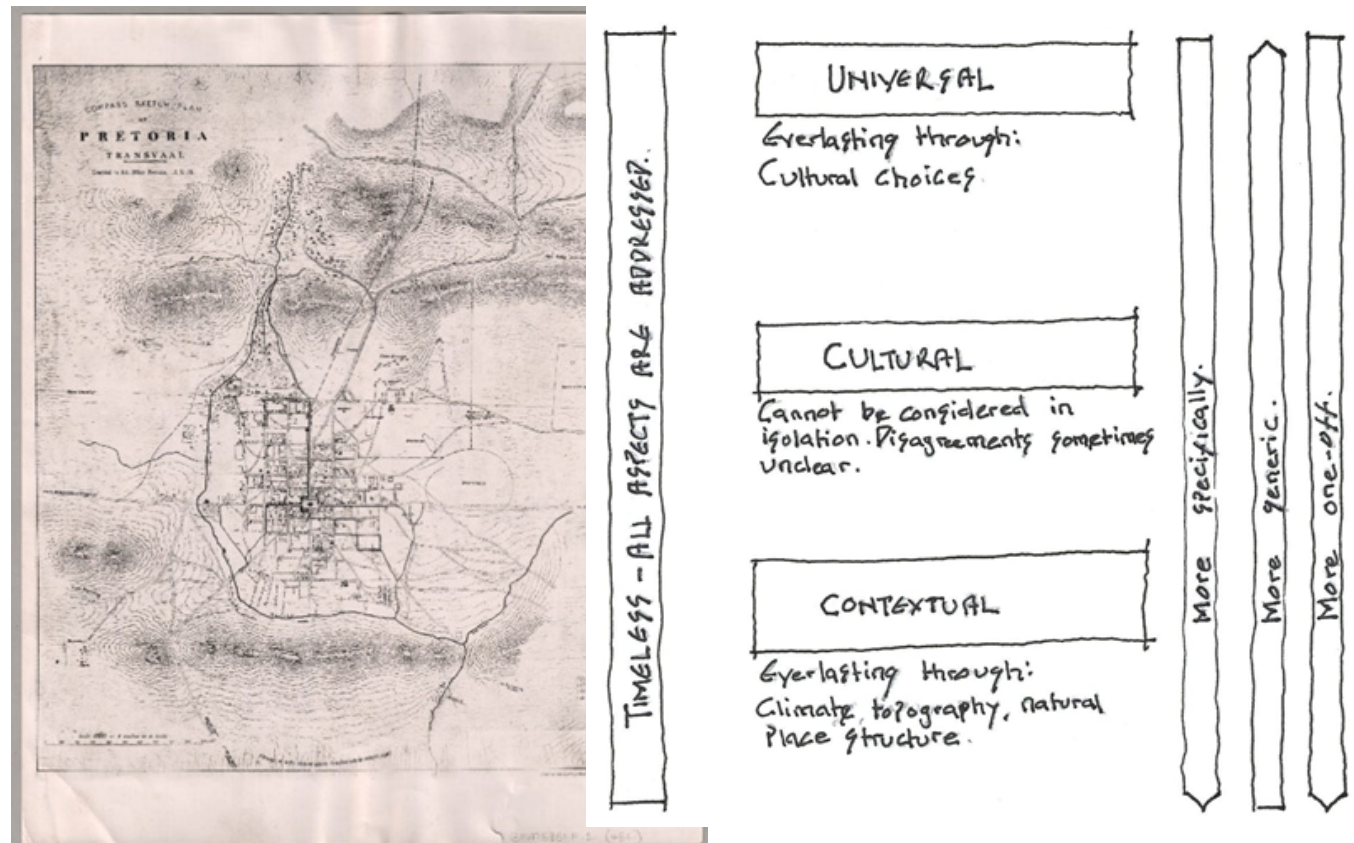 COMPASS SKETCH PLAN
OF
PRETORIA
TRANSVAAL
TIMELESS - ALL ASPECTS ARE ADDRESSED.
UNIVERSAL
Everlasting through:
Cultural choices
CULTURAL
Cannot be considered in
isolation. Disagreements sometimes
unclear.
CONTEXTUAL
Everlasting through:
Climate, topography, natural
Place structure.
More specifically.
More generic.
More one-off.